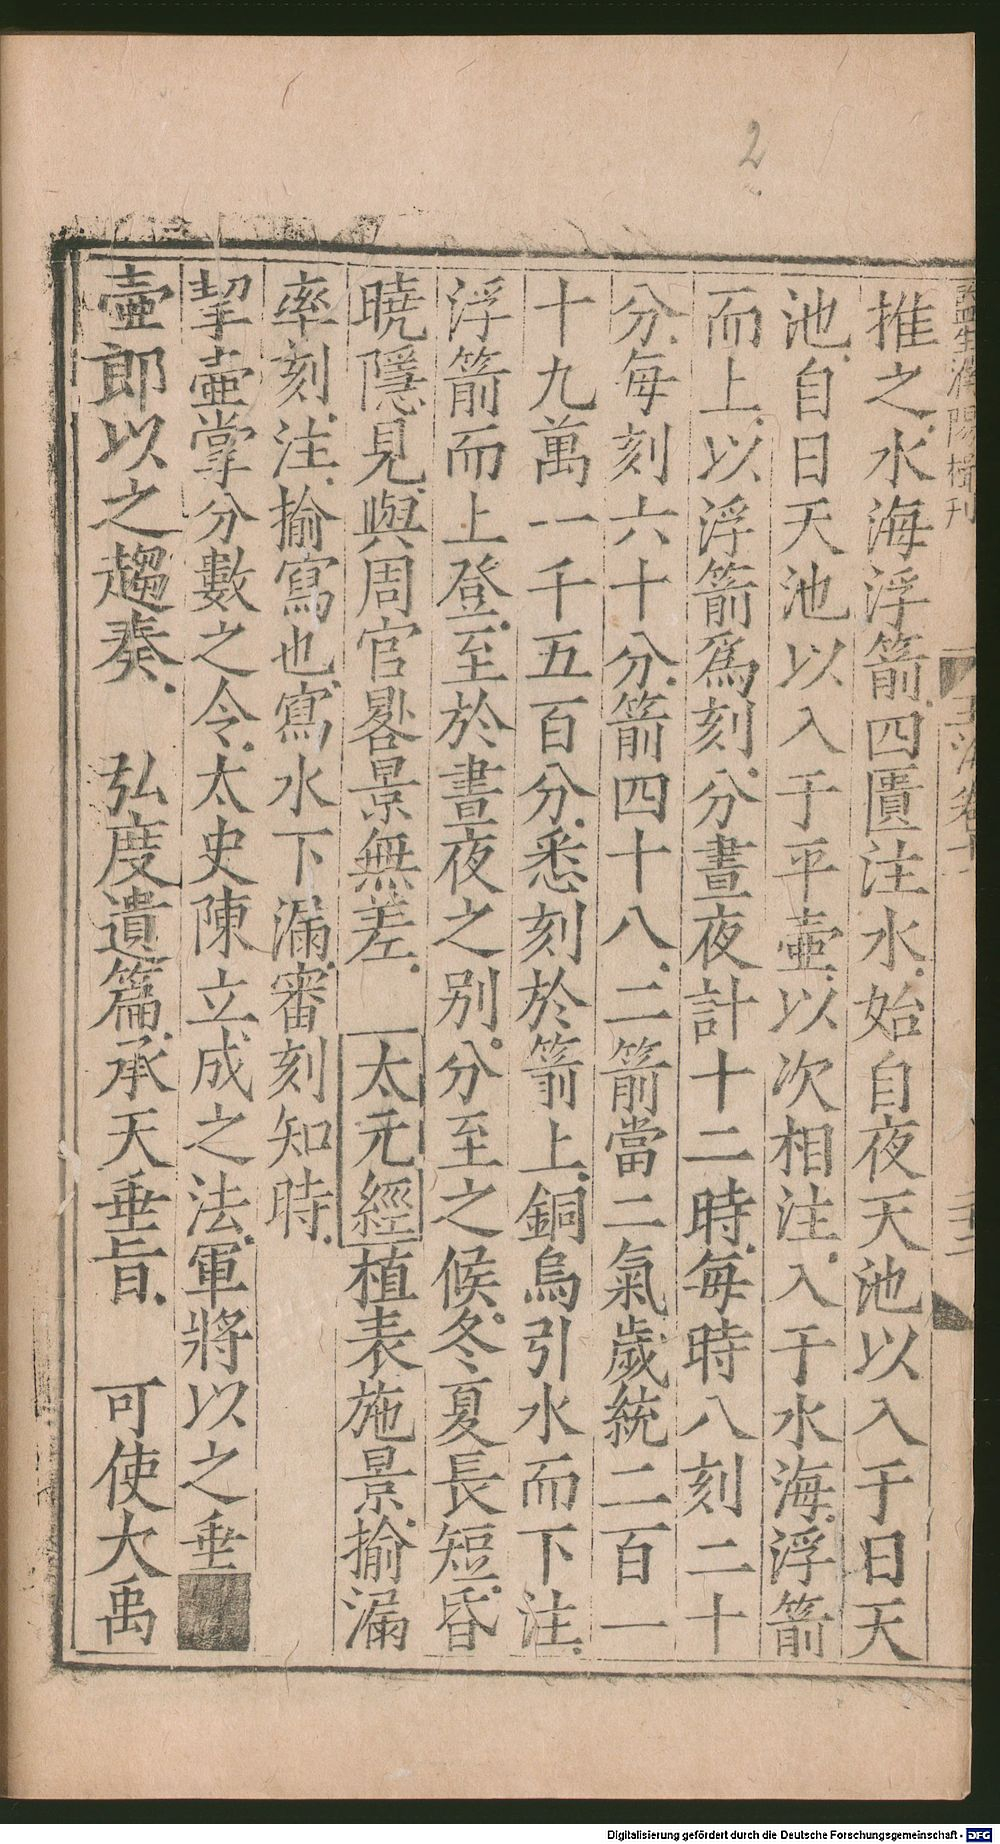 2
推之水海浮箭四匱注水始自夜天池以入于日天
池自日天池以入于平壷以次相注入于水海浮箭
而上以浮箭爲刻分晝夜計十二時每時八刻二十
分每刻六十分箭四十八二箭當二氣歲統二百一
十九萬一千五百分悉刻於箭上銅烏引水而下注
浮箭而上登至於晝夜之别分至之候冬夏長短昏
曉隱見與周官晷景無差 太元經植表施景揄漏
率刻注揄寫也寫水下漏審刻知時
挈壷掌分數之令太史陳立成之法軍將以之垂
壷郎以之趨奏 弘度遺篇承天垂旨 可使大禹
Digitalisierung gefördert durch die Deutsche Forschungsgemeinschaft - DFG